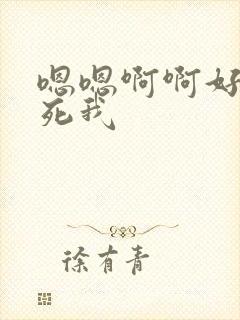 嗯嗯啊啊好
死我
徐有青